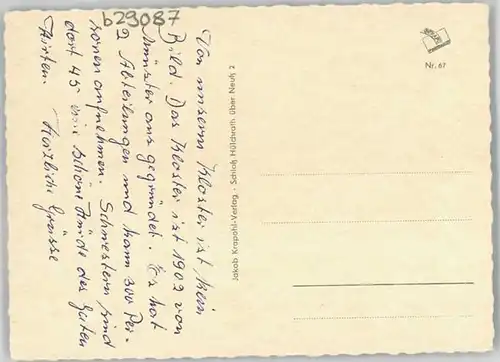 b29087
Von unserm Kloster ist kein
Bild. Das Kloster ist 1902 von
Münster aus gegründet. Es hat
2 Abteilungen und kann 300 Per-
sonen aufnehmen. Schwestern sind
dort 45 schöne Hände des Guten
Hirten. Herzliche Grüsse
Jakob Krapohl-Verlag · Schloß Hülchrath über Neuß 2
Nr. 67